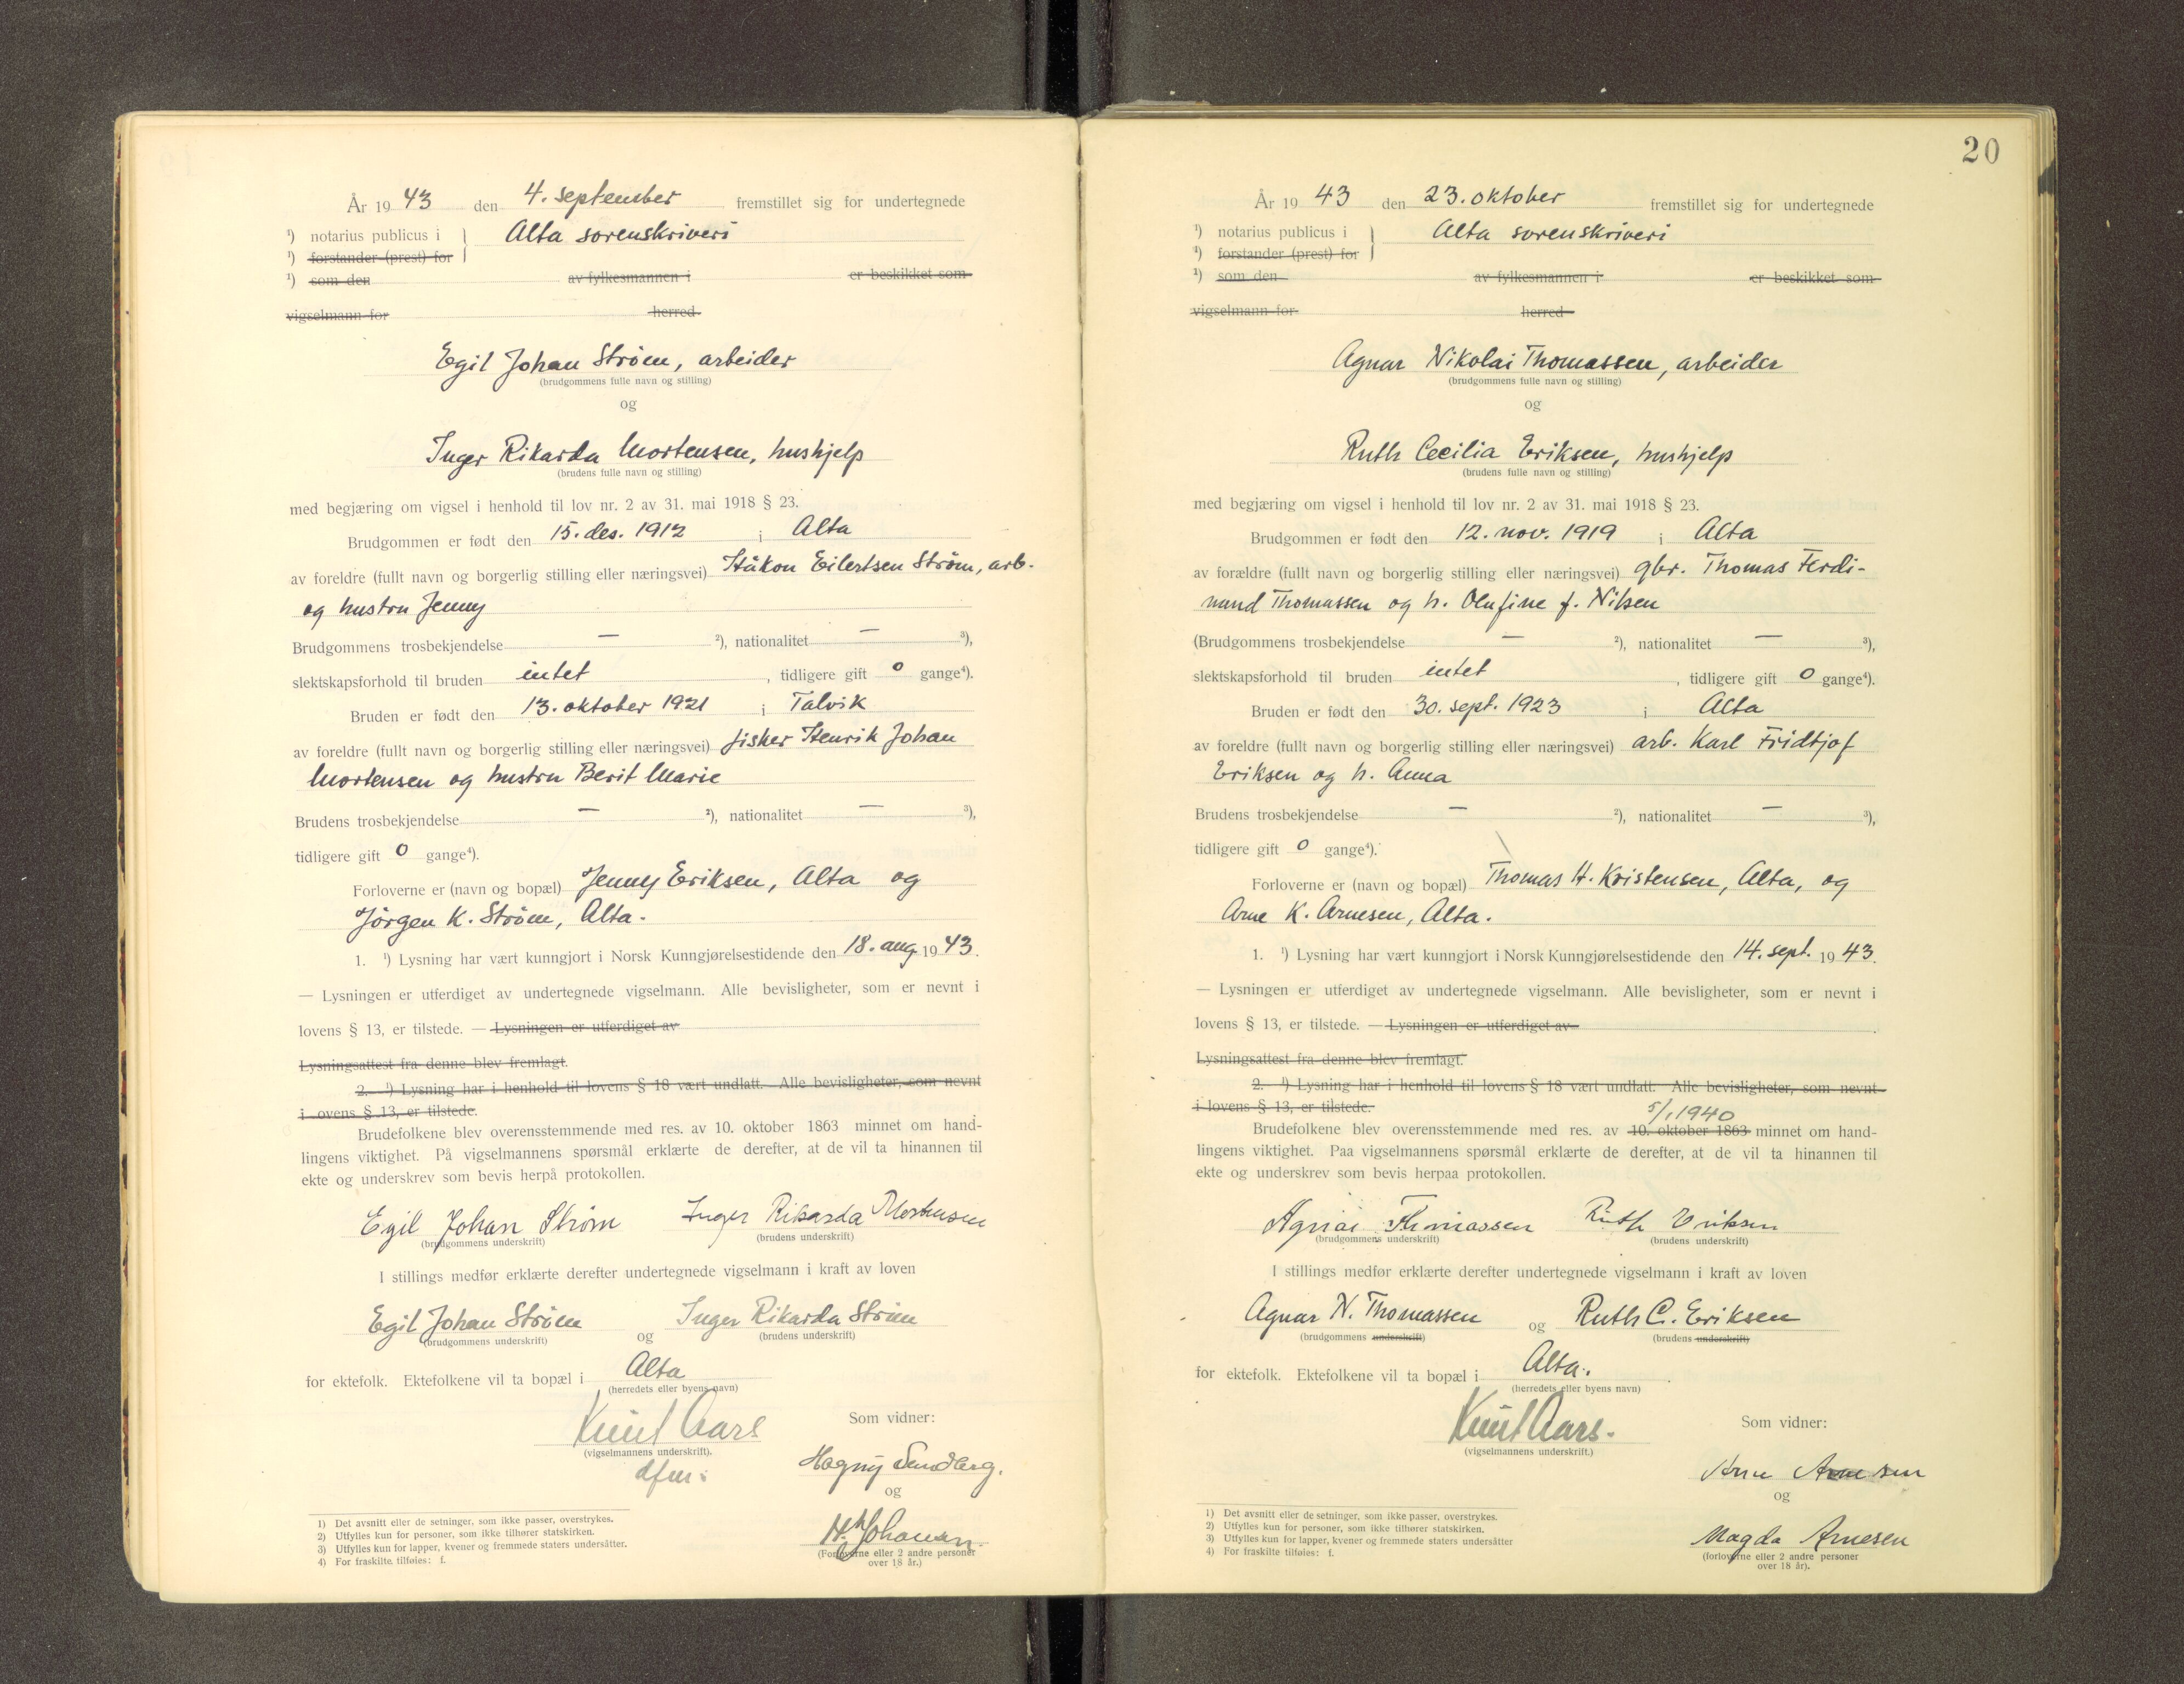 År 19 43 den 4. september fremstillet sig for undertegnede
¹) notarius publicus i } Alta sorenskriveri
¹) forstander (prest) for
¹) som den av fylkesmannen i er beskikket som
vigselmann for herred
Egil Johan Ström, arbeider
(brudgommens fulle navn og stilling)
og
Inger Rikarda Mortensen, hushjelp
(brudens fulle navn og stilling)
med begjæring om vigsel i henhold til lov nr. 2 av 31. mai 1918 § 23.
Brudgommen er født den 15. des. 1912 i Alta
av foreldre (fullt navn og borgerlig stilling eller næringsvei) Håkon Eilertsen Ström, arb.
og hustru Jenny
Brudgommens trosbekjendelse — ²), nationalitet — ³),
slektskapsforhold til bruden intet, tidligere gift 0 gange⁴).
Bruden er født den 13. oktober 1921 i Talvik
av foreldre (fullt navn og borgerlig stilling eller næringsvei) fisker Henrik Johan
Mortensen og hustru Berit Marie
Brudens trosbekjendelse — ²), nationalitet — ³),
tidligere gift 0 gange⁴).
Forloverne er (navn og bopæl) Jenny Eriksen, Alta og
Jörgen K. Ström, Alta.
1. ¹) Lysning har vært kunngjort i Norsk Kunngjørelsestidende den 18. aug. 19 43.
— Lysningen er utferdiget av undertegnede vigselmann. Alle bevisligheter, som er nevnt i
lovens § 13, er tilstede. — Lysningen er utferdiget av
Lysningsattest fra denne blev fremlagt.
2. ¹) Lysning har i henhold til lovens § 18 vært undlatt. Alle bevisligheter, som nevnt
i ovens § 13, er tilstede.
Brudefolkene blev overensstemmende med res. av 10. oktober 1863 minnet om hand-
lingens viktighet. På vigselmannens spørsmål erklærte de derefter, at de vil ta hinannen til
ekte og underskrev som bevis herpå protokollen.
Egil Johan Strøm Inger Rikarda Mortensen
(brudgommens underskrift) (brudens underskrift)
I stillings medfør erklærte derefter undertegnede vigselmann i kraft av loven
Egil Johan Ström og Inger Rikarda Ström
(brudgommens underskrift) (brudens underskrift)
for ektefolk. Ektefolkene vil ta bopæl i Alta
(herredets eller byens navn)
Knut Aars Som vidner:
(vigselmannens underskrift).
dfm. Hagny Sandberg.
og
H. Johansen
(Forloverne eller 2 andre personer
over 18 år.)
1) Det avsnitt eller de setninger, som ikke passer, overstrykes.
2) Utfylles kun for personer, som ikke tilhører statskirken.
3) Utfylles kun for lapper, kvener og fremmede staters undersåtter.
4) For fraskilte tilføies: f.
20
År 19 43 den 23. oktober fremstillet sig for undertegnede
¹) notarius publicus i } Alta sorenskriveri
¹) forstander (prest) for
¹) som den av fylkesmannen i er beskikket som
vigselmann for herred
Agnar Nikolai Thomassen, arbeider
(brudgommens fulle navn og stilling)
og
Ruth Cecilia Eriksen, hushjelp
(brudens fulle navn og stilling)
med begjæring om vigsel i henhold til lov nr. 2 av 31. mai 1918 § 23.
Brudgommen er født den 12. nov. 1919 i Alta
av forældre (fullt navn og borgerlig stilling eller næringsvei) gbr. Thomas Ferdi-
nand Thomassen og h. Olufine f. Nilsen
(Brudgommens trosbekjendelse — ²), nationalitet — ³),
slektskapsforhold til bruden intet, tidligere gift 0 gange⁴).
Bruden er født den 30. sept. 1923 i Alta
av foreldre (fullt navn og borgerlig stilling eller næringsvei) arb. Karl Fridtjof
Eriksen og h. Anna
Brudens trosbekjendelse — ²), nationalitet — ³),
tidligere gift 0 gange⁴).
Forloverne er (navn og bopæl) Thomas H. Kristensen, Alta, og
Arne K. Arnesen, Alta.
1. ¹) Lysning har vært kunngjort i Norsk Kunngjørelsestidende den 14. sept. 19 43.
— Lysningen er utferdiget av undertegnede vigselmann. Alle bevisligheter, som er nevnt i
lovens § 13, er tilstede. — Lysningen er utferdiget av
Lysningsattest fra denne blev fremlagt.
2. ¹) Lysning har i henhold til lovens § 18 vært undlatt. Alle bevisligheter, som nevnt
i lovens § 13, er tilstede.
5/1 1940
Brudefolkene blev overensstemmende med res. av 10. oktober 1863 minnet om hand-
lingens viktighet. Paa vigselmannens spørsmål erklærte de derefter, at de vil ta hinannen til
ekte og underskrev som bevis herpaa protokollen.
Agnar Thomassen Ruth Eriksen
(brudgommens underskrift) (brudens underskrift)
I stillings medfør erklærte derefter undertegnede vigselmann i kraft av loven
Agnar N. Thomassen og Ruth C. Eriksen
(brudgommens underskrift) (brudens underskrift)
for ektefolk. Ektefolkene vil ta bopæl i Alta.
(herredets eller byens navn)
Knut Aars. Som vidner:
(vigselmannens underskrift.)
Arne Arnesen
og
Magda Arnesen
(forloverne eller 2 andre personer
over 18 år).
1) Det avsnitt eller de setninger, som ikke passer, overstrykes.
2) Utfylles kun for personer, som ikke tilhører statskirken.
3) Utfylles kun for lapper, kvener og fremmede staters undersåtter
4) For fraskilte tilføies: f.